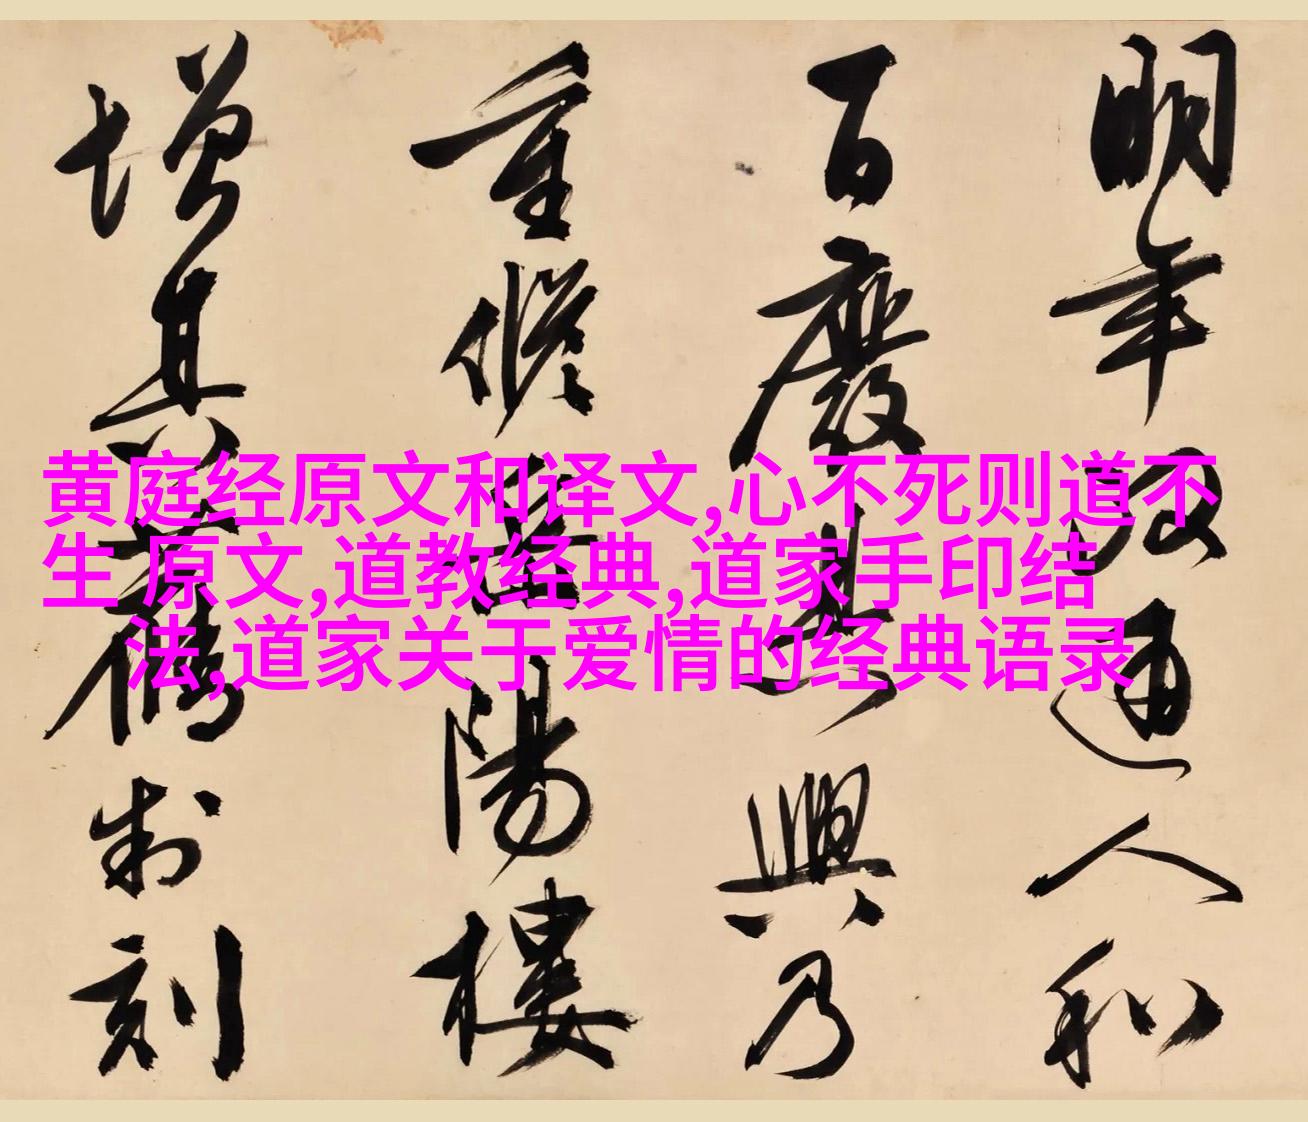 明年政通人和
百廢具興乃
重脩岳陽樓
增其舊制刻
黄庭经原文和译文,心不死则道不
生 原文,道教经典,道家手印结
法,道家关于爱情的经典语录